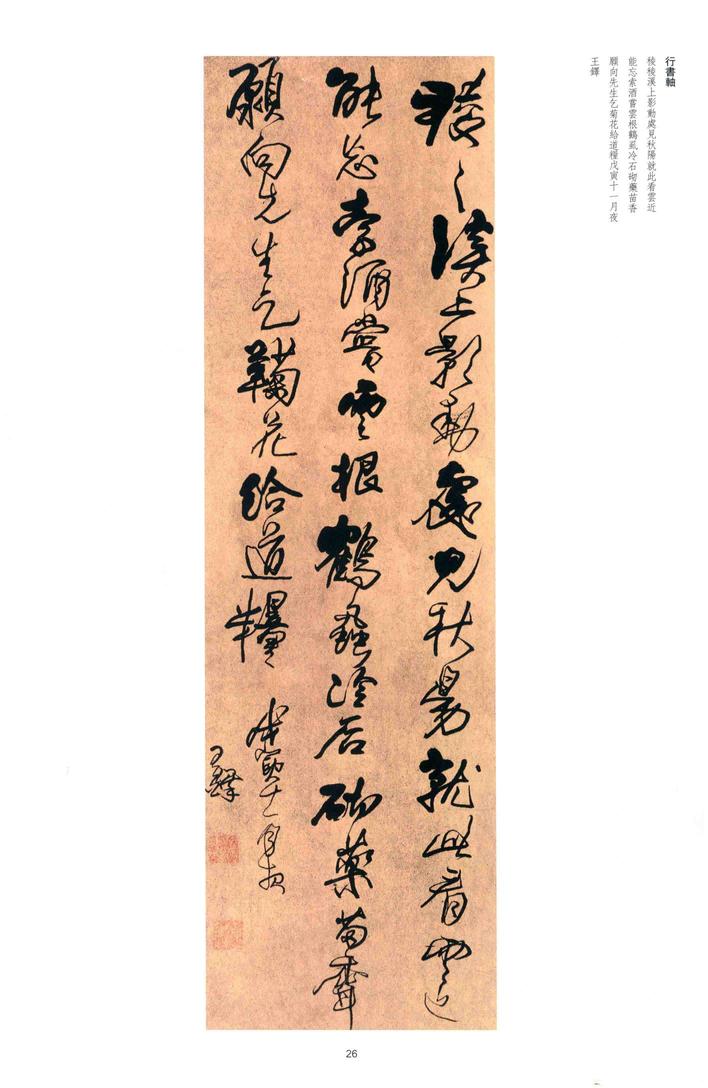 行書軸
棱棱溪上影動處見秋陽就此看雲近
能忘索酒嘗雲根鶴虱冷石砌藥苗香
願向先生乞菊花給道糧戊寅十一月夜
王鐸
棱〻溪上影動處見秋易就此看雲近
能忘索酒嘗雲根鶴蝨冷石砌藥苗香
願向先生乞鞠花給道糧 戊寅十一月夜
王鐸
26